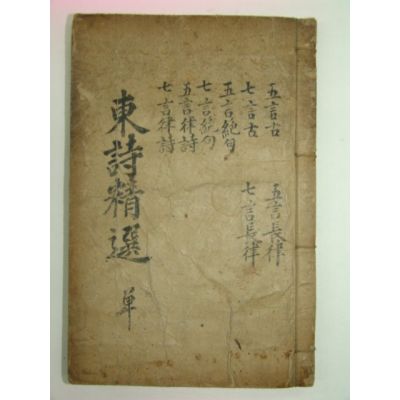 五言古 五言長律
七言古 七言長律
五言絶句
七言絶句
五言律詩
七言律詩
東詩精選 単